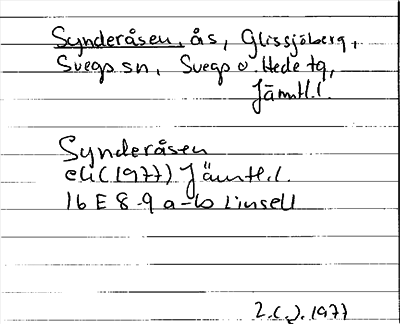 Synderåsen, ås, Glissjöberg,
Svegs sn, Svegs o. Hede tg,
Jämtl.l.
Synderåsen
ek (1977) Jämtl.l.
16 E 8-9 a-b Linsell
1977